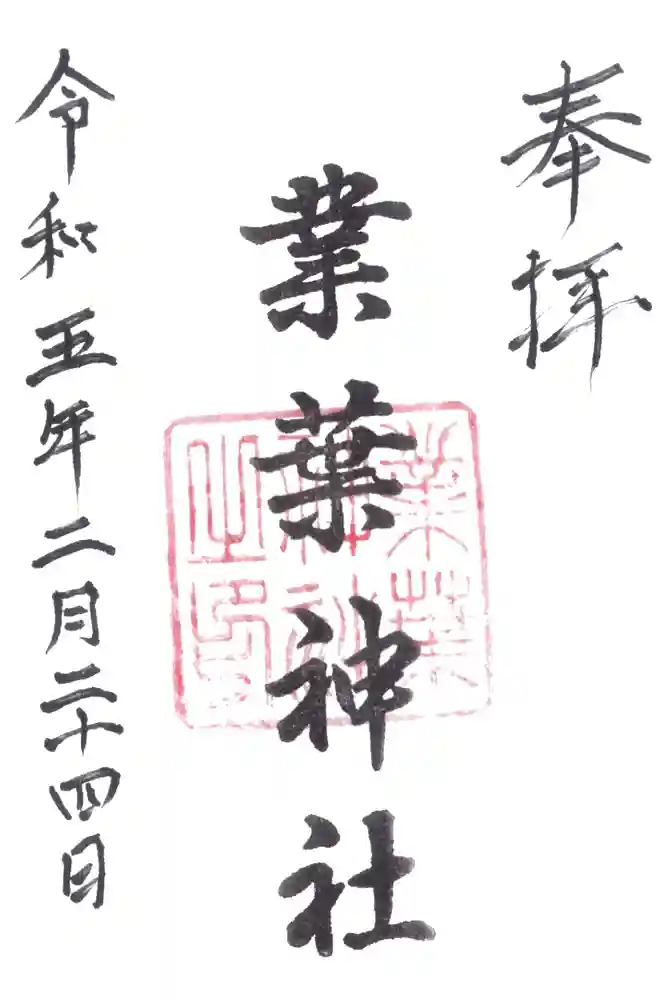 奉拝
業葉神社
業葉神社之印
令和五年二月二十四日